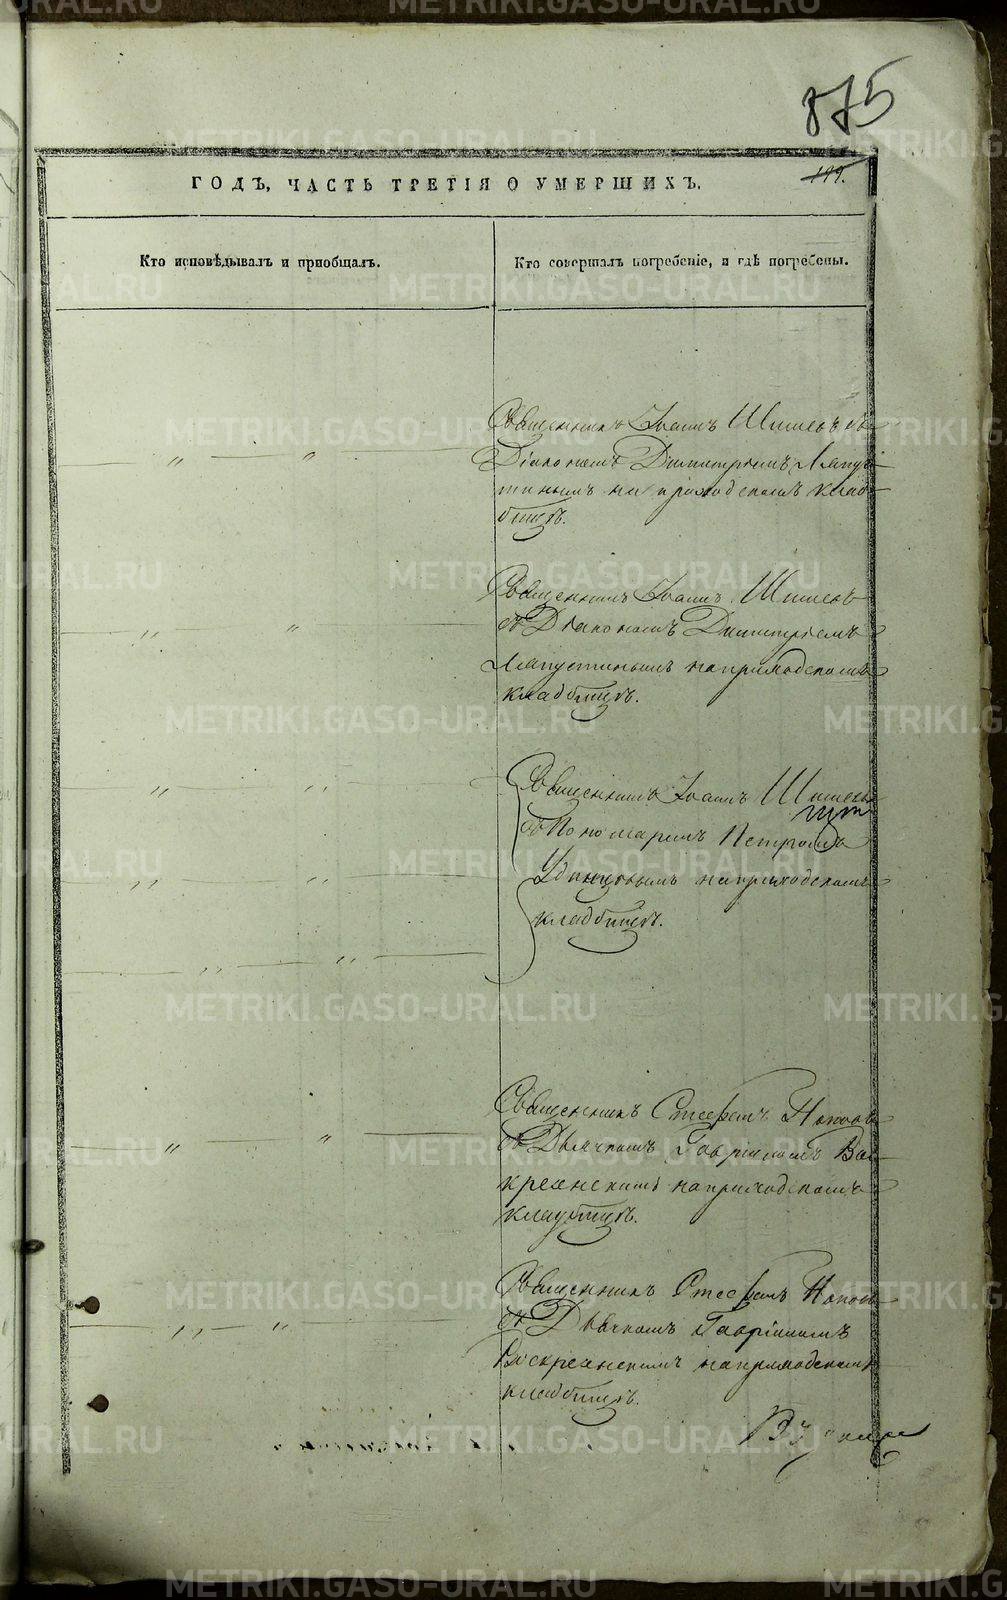 875
ГОДЪ, ЧАСТЬ ТРЕТІЯ О УМЕРШИХЪ.
199.
Кто исповѣдывалъ и приобщалъ.
Кто совершалъ погребеніе, и гдѣ погребены.
Священникъ Іоаннъ Шишевъ съ
Діакономъ Димитріемъ Лапу-
тинымъ на приходскомъ клад-
бищѣ.
Священникъ Іоаннъ Шишевъ
съ Діакономъ Димитріемъ
Лапустинымъ на приходскомъ
кладбищѣ.
Священникъ Іоаннъ Шишевъ
съ Пономаремъ Петромъ
Удинцовымъ на приходскомъ
кладбищѣ.
Священникъ Стефанъ Поповъ
съ Дьячкомъ Гавріиломъ Вос-
кресенскимъ на приходскомъ
кладбищѣ.
Священникъ Стефанъ Поповъ
съ Дьячкомъ Гавріиломъ
Воскресенскимъ на приходскомъ
кладбищѣ.
METRIKI.GASO-URAL.RU